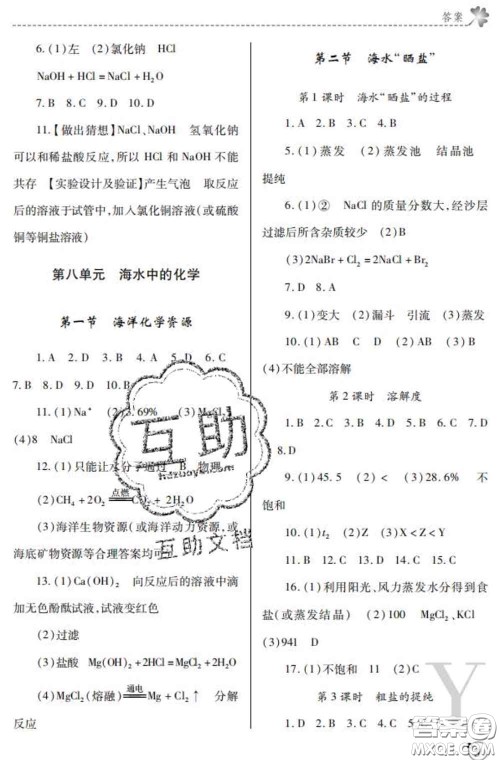 答案
6. (1)左 (2)氯化钠 HCl
NaOH + HCl = NaCl + H₂O
7. B 8. C 9. D 10. D
11.【做出猜想】NaCl、NaOH 氢氧化钠
可以和稀盐酸反应,所以 HCl 和 NaOH 不能
共存 【实验设计及验证】产生气泡 取反应
后的溶液于试管中,加入氯化铜溶液(或硫酸
铜等铜盐溶液)
第八单元 海水中的化学
第一节 海洋化学资源
1. A 2. D 3. B 4. A 5. D 6. C
7. B 8. D 9. D 10. B
11. (1)Na⁺ (2)3.69% (3)MgCl₂
(4)8 NaCl
12. (1)只能让水分子通过 B 物理
(2)CH₄ + 2O₂ 点燃 CO₂ + 2H₂O
(3)海洋生物资源(或海洋动力资源、或
海底矿物资源等合理答案均可)
13. (1)Ca(OH)₂ 向反应后的溶液中滴
加无色酚酞试液,试液变红色
(2)过滤
(3)盐酸 Mg(OH)₂ + 2HCl = MgCl₂ + 2H₂O
(4)MgCl₂(熔融) 通电 Mg + Cl₂↑ 分解
反应
第二节 海水“晒盐”
第1课时 海水“晒盐”的过程
1. A 2. B 3. C 4. B
5. (1)蒸发 (2)蒸发池 结晶池
提纯
6. (1)② NaCl 的质量分数大,经沙层
过滤后所含杂质较少 (2)B
(3)2NaBr + Cl₂ = 2NaCl + Br₂
7. D 8. A
9. (1)变大 (2)漏斗 引流 (3)蒸发
10. (1)AB (2)C (3)AB
(4)不能全部溶解
第2课时 溶解度
1. B 2. C 3. C 4. D 5. C 6. C 7. D
8. D
9. (1)45.5 (2)< (3)28.6% 不
饱和
10. (1)t₂ (2)Z (3)X<Z<Y
11. B 12. B 13. C 14. A 15. C
16. (1)利用阳光、风力蒸发水分得到食
盐(或蒸发结晶) (2)100 MgCl₂、KCl
(3)941 D
17. (1)不饱和 11 (2)C
第3课时 粗盐的提纯
1. D 2. B 3. C 4. C
互助
hezuoybl.com
互助文档
Y
答案圈
MXQE.COM